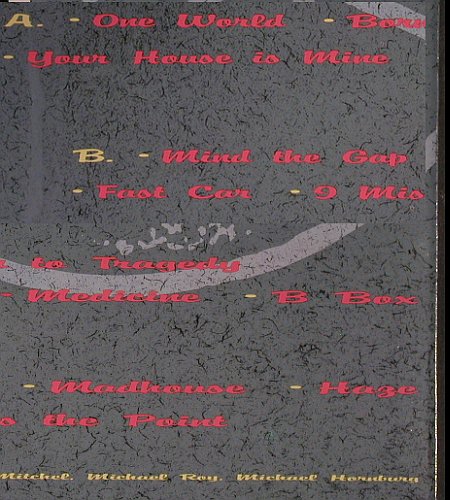 A. - One World - Born
- Your House is Mine
B. - Mind the Gap
- Fast Car - 9 Mis
to Tragedy
- Medicine - B Box
- Madhouse - Haze
s the Point
Mitchel, Michael Roy, Michael Hornburg